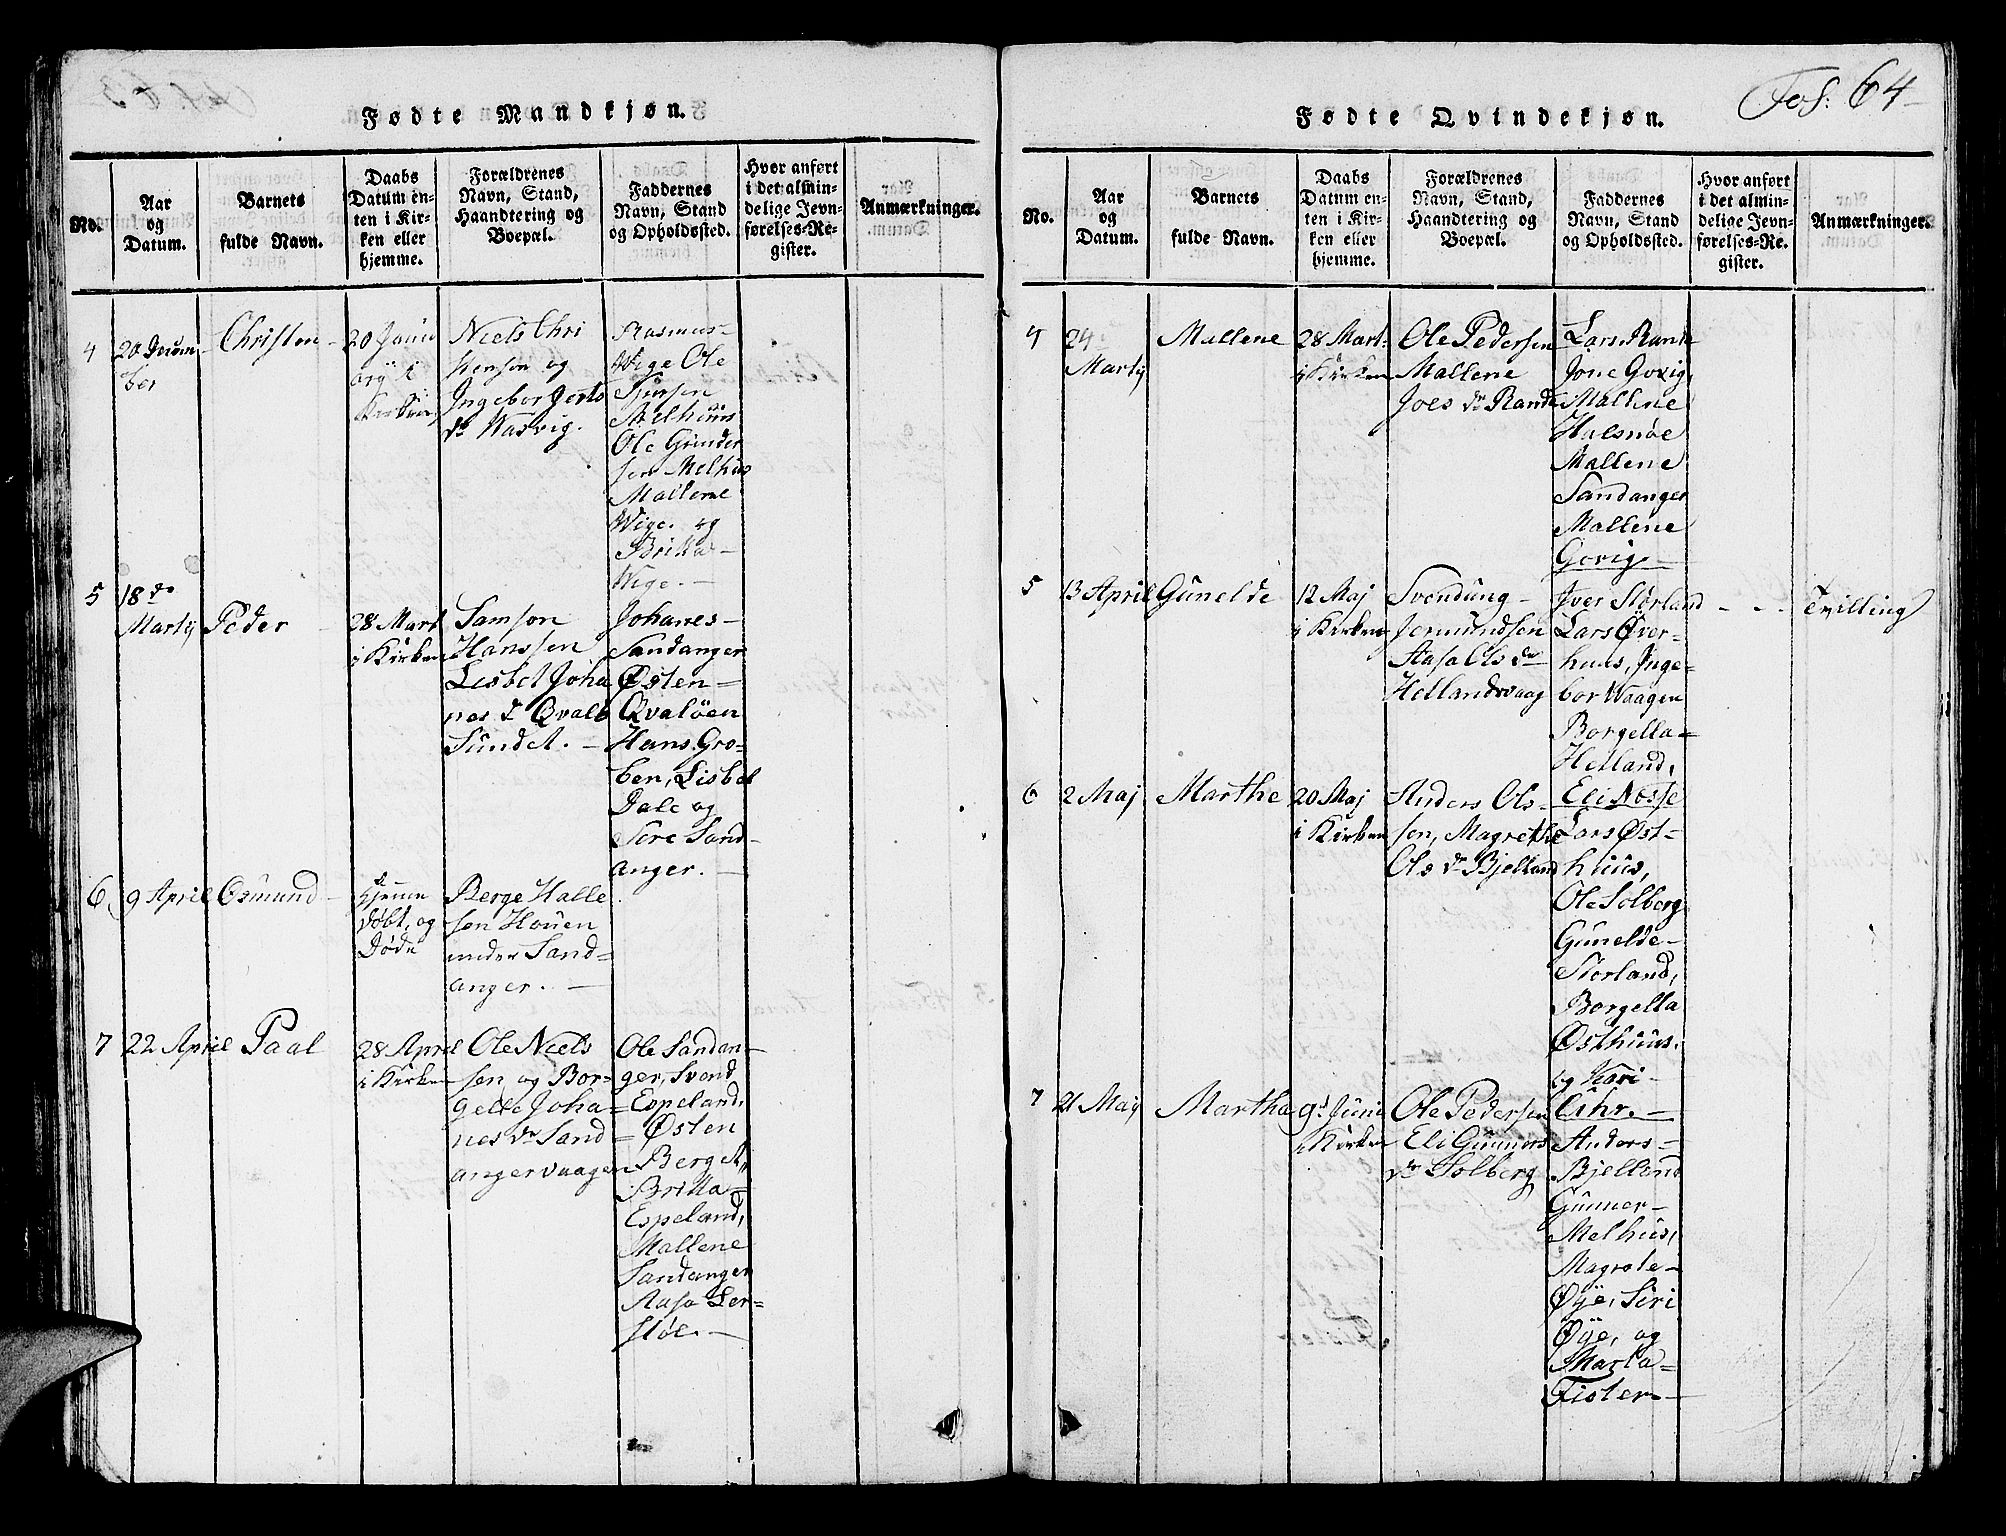 Fødte Mandkjøn.
No.
Aar
og
Datum.
Barnets
fulde Navn.
Daabs
Datum en-
ten i Kir-
ken eller
hjemme.
Forældrenes
Navn, Stand,
Haandtering og
Boepæl.
Faddernes
Navn, Stand
og Opholdssted.
Hvor anført
i det almin-
delige Jevn-
førelses-Re-
gister.
Anmærkninger.
4
20 Decem
ber
Christen
20 Janu
ary i
Kirken
Niels Chri
stensen og
Ingebor Jorts
dr Nasvig.
Rasmus
Wige Ole
Sjursen
Melhuus
Ole Gunder
sen Melhus
Mallene
Wige. og
Britta
Wige.
5
18de
Martij
Peder
28 Mart
i Kirken
Samson
Hanssen
Lisbet Joha
nes dr Qvalø
Sundet.
Johanes
Sandanger
Østen
Qvaløen
Hans Gro-
ben, Lisbet
Dale og
Sire Sand-
anger.
6
9 April
Osmund
Hjemme
døbt, og
Døde
Berge Halle
sen Houen
under Sand=
anger.
7
22 April
Paal
28 April
i Kirken
Ole Niels
sen og Bor-
gelle Joha=
nes dr Sand
angervaagen
Ole Sandan-
ger, Svend
Espeland,
Østen
Berge
Britta
Espeland,
Mallene
Sandanger
Aasa Ler=
støl.
Fol: 64
Fødte Qvindekjøn.
No.
Aar
og
Datum.
Barnets
fulde Navn.
Daabs
Datum en-
ten i Kir-
ken eller
hjemme.
Forældrenes
Navn, Stand,
Haandtering og
Boepæl.
Faddernes
Navn, Stand
og Opholdssted.
Hvor anført
i det almin-
delige Jevn-
førelses-Re-
gister.
Anmærkninger.
4
24
Martij
Mallene
28 Mart
i Kirken
Ole Pedersen
Mallene
Joes dr Rande
Lars Rande
Jone Govig,
Mallene
Halsnøe
Mallene
Sandanger
Mallene
Govig
5
13 April
Gunelde
12 Maj
i Kirken
Svendung
Jermundsen
Aasa Ols dr
Hellandsvaag
Iver Storland
Lars Øver-
huus, Inge-
bor Waagen
Borgella
Helland,
Eli Nesse
Tvilling
6
2 Maj
Marthe
20 Maj
i Kirken
Anders Ols-
sen, Magrethe
Ols dr Bjelland
Lars Øst-
huus,
Ole Solberg
Gunelde
Storland,
Borgella
Østhuus.
og Kari
7
21 Maj
Martha
9d Junii
i Kirken
Ole Pedersen
Eli Gunners
dr Solberg
Anders
Bjelland
Gunner
Melhus,
Magrete
Øÿe, Siri
Øÿe, og
Marta
Fister